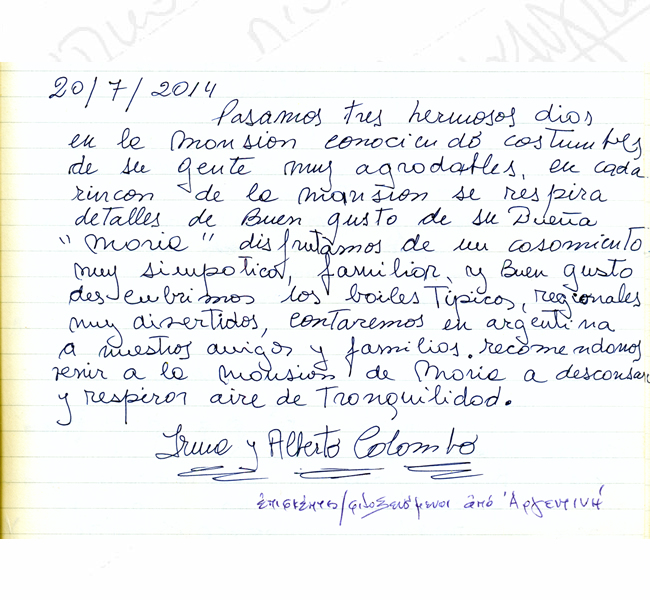 20/7/2014
Pasamos tres hermosos dias
en la mansion conociendo costumbres
de su gente muy agradables, en cada
rincon de la mansion se respira
detalles de Buen gusto de su Dueña
"Maria" disfrutamos de un casamiento
muy simpatico, familiar, y Buen gusto
descubrimos los bailes Tipicos, regionales
muy divertidos, contaremos en argentina
a nuestros amigos y familias. recomendanos
venir a la mansion de Maria a descansar
y respirar aire de Tranquilidad.
Irma y Alberto Colombo
επισκέπτες/φιλοξενούμενοι από Αργεντινή